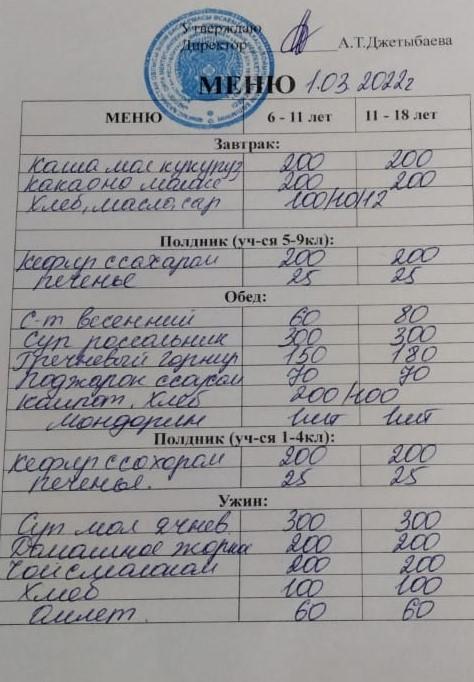 Утверждаю
Директор А.Т.Джетыбаева
МЕНЮ 1.03.2022г
МЕНЮ 6 - 11 лет 11 - 18 лет
Завтрак:
Каша мол кукуруз 200 200
какао но малаке 200 200
Хлеб, масло, сар 100/10/12
Полдник (уч-ся 5-9кл):
Кефир ссахаром 200 200
печенье 25 25
Обед:
С-т весенний 60 80
Суп россольник 300 300
Гречневый горнир 150 180
Поджарок ссоусом 70 70
кампот, Хлеб 200/100
Мондарин 1шт 1шт
Полдник (уч-ся 1-4кл):
Кефир ссохором 200 200
печенья. 25 25
Ужин:
Суп мол ячнев 300 300
Домашное жаркое 200 200
Чой смалоком 200 200
Хлеб 100 100
Омлет. 60 60